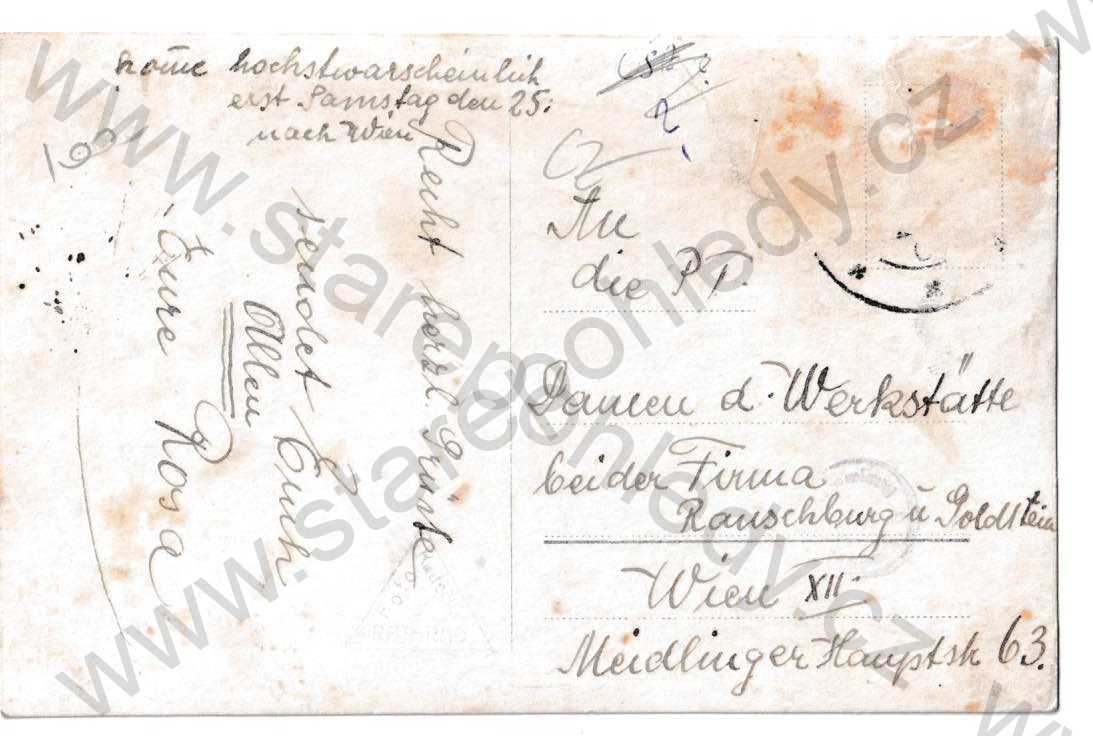 kom̄e hochstwarscheinlich
erst Samstag den 25.
nach Wien
Recht herzl. Grüsse
sendet Euch
Allen
Eure Rosa
19
2
CZ
An
die P.T.
Damen d. Werkstätte
bei der Firma
Rauschburg ū Goldstein
Wien XII.
Meidlinger Hauptstr 63.
Foto
www.starepohledy.cz
www.starepohledy.cz